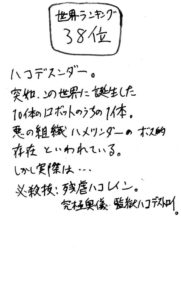 世界ランキング
38位
ハコデスンダー。
突如、この世界に誕生した
10体のロボットのうちの1体。
悪の組織ハメツンダーのボス的
存在といわれている。
しかし実際は…
必殺技:残虐ハコレイン。
究極奥儀 監獄ハコデストロイ。